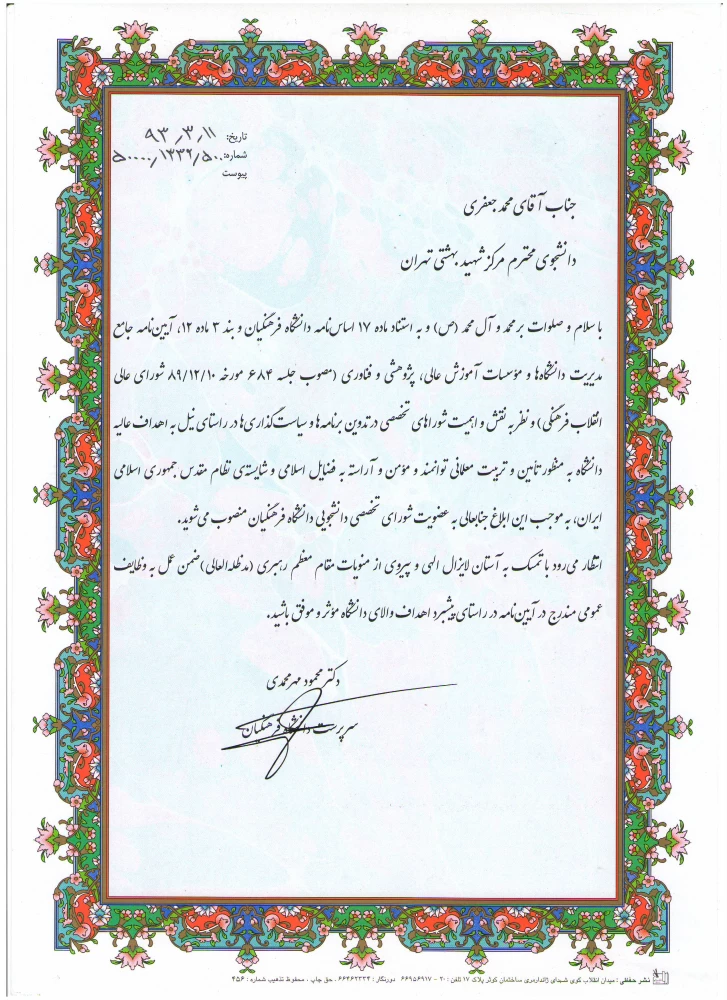 تاریخ: ۹۳٫۳٫۱۱
شماره: ۵۰۰۰۰٫۱۳۳۲٫۵۰۰
پیوست
جناب آقای محمد جعفری
دانشجوی محترم مرکز شهید بهشتی تهران
با سلام و صلوات بر محمد و آل محمد (ص) و به استناد ماده ۱۷ اساس‌نامه دانشگاه فرهنگیان و بند ۳ ماده ۱۲، آیین‌نامه جامع
مدیریت دانشگاه‌ها و مؤسسات آموزش عالی، پژوهشی و فناوری (مصوب جلسه ۶۸۴ مورخه ۸۹/۱۲/۱۰ شورای عالی
انقلاب فرهنگی) و نظر به نقش و اهمیت شوراهای تخصصی در تدوین برنامه‌ها و سیاست‌گذاری‌ها در راستای نیل به اهداف عالیه
دانشگاه به منظور تأمین و تربیت معلمانی توانمند و مؤمن و آراسته به فضایل اسلامی و شایسته‌ی نظام مقدس جمهوری اسلامی
ایران، به موجب این ابلاغ جنابعالی به عضویت شورای تخصصی دانشجویی دانشگاه فرهنگیان منصوب می‌شوید.
انتظار می‌رود با تمسک به آستان لایزال الهی و پیروی از منویات مقام معظم رهبری (مدظله‌العالی) ضمن عمل به وظایف
عمومی مندرج در آیین‌نامه در راستای پیشبرد اهداف والای دانشگاه مؤثر و موفق باشید.
دکتر محمود مهرمحمدی
سرپرست دانشگاه فرهنگیان
نشر حفظی : میدان انقلاب کوی شهدای ژاندارمری ساختمان کوثر پلاک ۱۷ تلفن : ۲۰ - ۶۶۹۵۶۹۱۷ دورنگار : ۶۶۴۶۲۳۳۴ . حق چاپ ، محفوظ تذهیب شماره : ۴۵۶